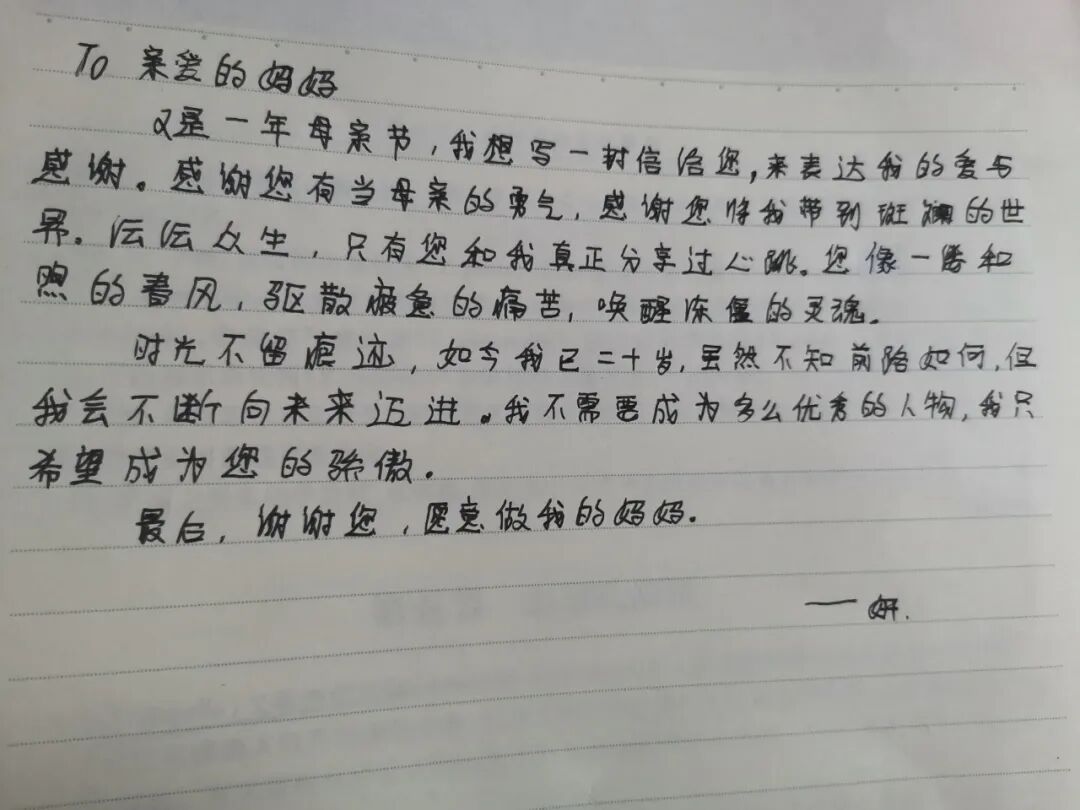 To 亲爱的妈妈
又是一年母亲节,我想写一封信给您,来表达我的爱与
感谢。感谢您有当母亲的勇气,感谢您将我带到斑斓的世
界。芸芸众生,只有您和我真正分享过心跳。您像一缕和
煦的春风,驱散疲惫的痛苦,唤醒冻僵的灵魂。
时光不留痕迹,如今我已二十岁,虽然不知前路如何,但
我会不断向未来迈进。我不需要成为多么优秀的人物,我只
希望成为您的骄傲。
最后,谢谢您,愿意做我的妈妈。
——妍.